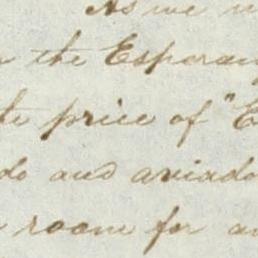 As we
the Esperan
price of "E
do and aviado
room for a